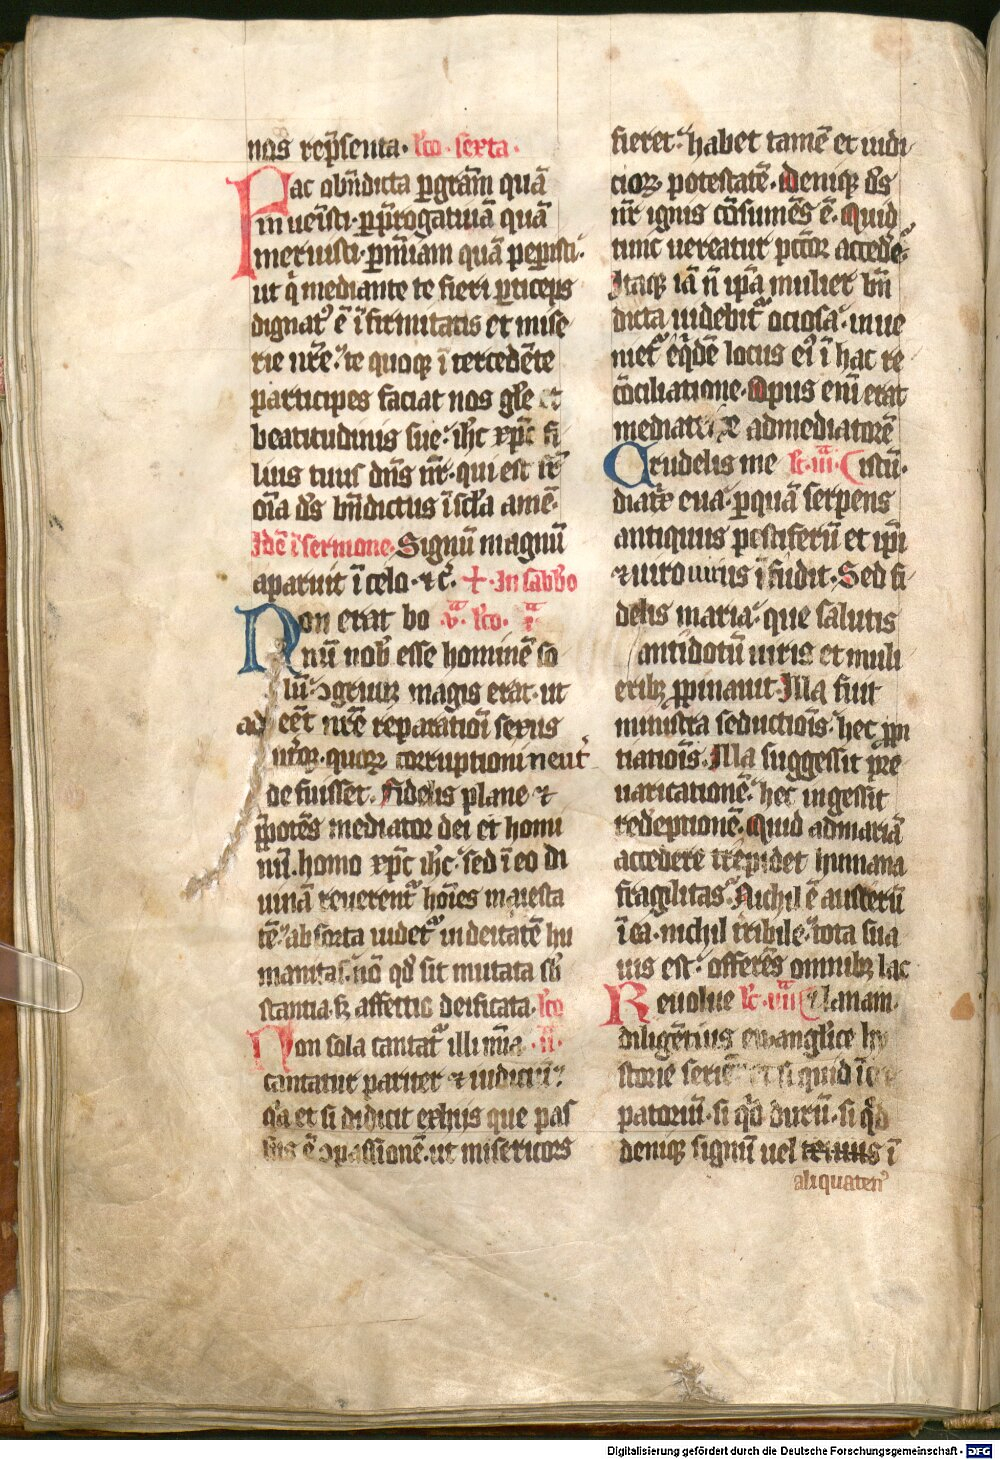 nos rep̄senta· lc̄o · sexta ·
Fac obn̄dicta ꝑgrām quā
inuenisti· ꝑp̄rogatiuā quā
meruisti· ꝑ mīam quā peperisti·
ut q̇ mediante te fieri ꝑticeps
dignatꝰ ē ī firmitatis et mise
rie nr̄e· te quoqꝫ ītercedēte
participes faciat nos gl̄e et
beatitudinis sue· ih̄c xp̄c fi
lius tuus dn̄s nr̄· qui est sr̄
oīa d̄s bn̄dictus ī scl̄a amē·
Idē ī sermone· Signū magnū
aparuit ī celo· ⁊c̄· In sabb̄o
Non erat bo v̄· lc̄o· ī
nū nob̄ esse hominē so
lū· ꝯgruuꝫ magis erat· ut
adēēt nr̄e reparatiōi sexus
ut̄qꝫ· quoꝝ corruptioni neut̄
defuisset· fidelis plane ⁊
p̄potēs mediator dei et homi
nū· homo xp̄c ih̄c· sed ī eo di
uinā reuerentᷓ hoīes maiesta
tē· absorta uidetᷓ in deitatē hu
manitas· nō qd̄ sit mutata sb̄
stantia· sꝫ affectio deificata· lc̄o
Non sola cantatᷓ illi mīa · ıı·
cantatur pariter ⁊ iudiciū·
qa et si didicit ex hiis que pas
sus ē ꝯpassionē· ut misericors
fieret· habet tamē et iudi
cioꝝ potestatē· Deniqꝫ d̄s
nr̄ ignis cōsumēs ē· Quid
tunc uereatur pctōr accede·
Itaqꝫ iā nō ipā mulier bn̄
dicta uidebitᷓ ociosa· inue
nietᷓ eqdē locus eiꝰ ī hac re
cōciliatione· Opus enī erat
mediatrixe ad mediatorē
Crudelis me lc̄· ııı· istū·
diatᷓx eua· ꝑquā serpens
antiquus pestiferū et ipī
⁊ uiro uirus īfudit· Sed fi
delis maria· que salutis
antidotū uiris et muli
eribꝫ ꝓpinauit· Illa fuit
ministra seductiōis· hec ꝓpi
tiatiōis· Illa suggessit pre
uaricationē· hec ingessit
redēptionē· Quid ad mariā
accedere trepidet humana
fragilitas· Nichil ē austerū
ī ea· nichil tribile· tota sua
uis est· offerēs omnibꝫ lac
Reuolue lc̄· ıııı· lanam·
diligētius ewanglice hy
storie seriē et si quid ī
patoriū· si qd̄ durū· si qd̄
deniqꝫ signū uel tenuis ī
aliquatenꝰ
Digitalisierung gefördert durch die Deutsche Forschungsgemeinschaft - DFG